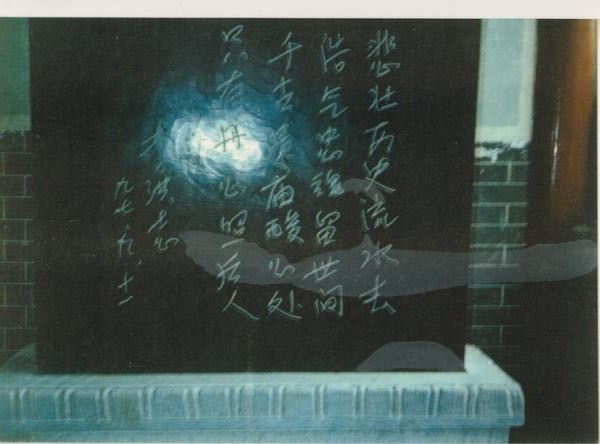 悲壮历史流水去
浩气忠魂留世间
千古岳庙酸心处
只有丹心照后人
李洪志
九七.九.十一